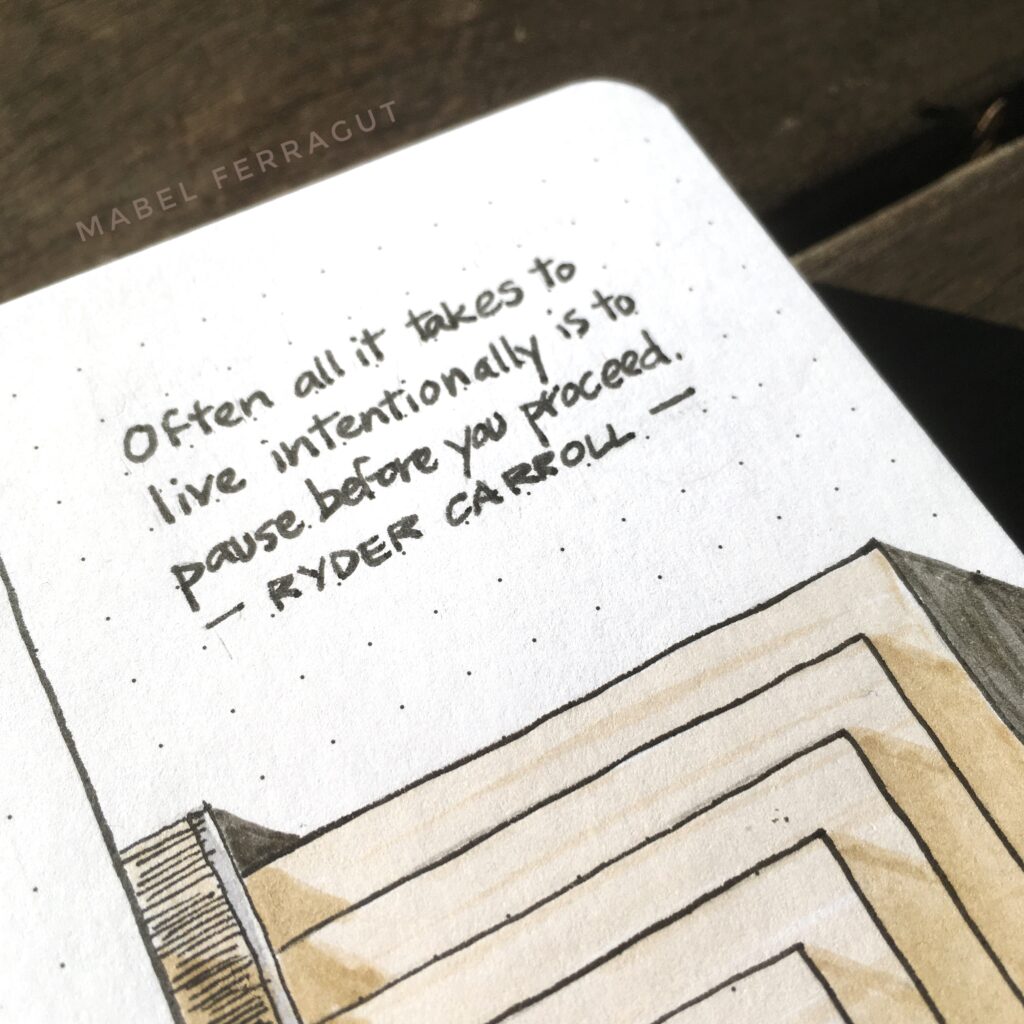 MABEL FERRAGUT
Often all it takes to
live intentionally is to
pause before you proceed.
— RYDER CARROLL —